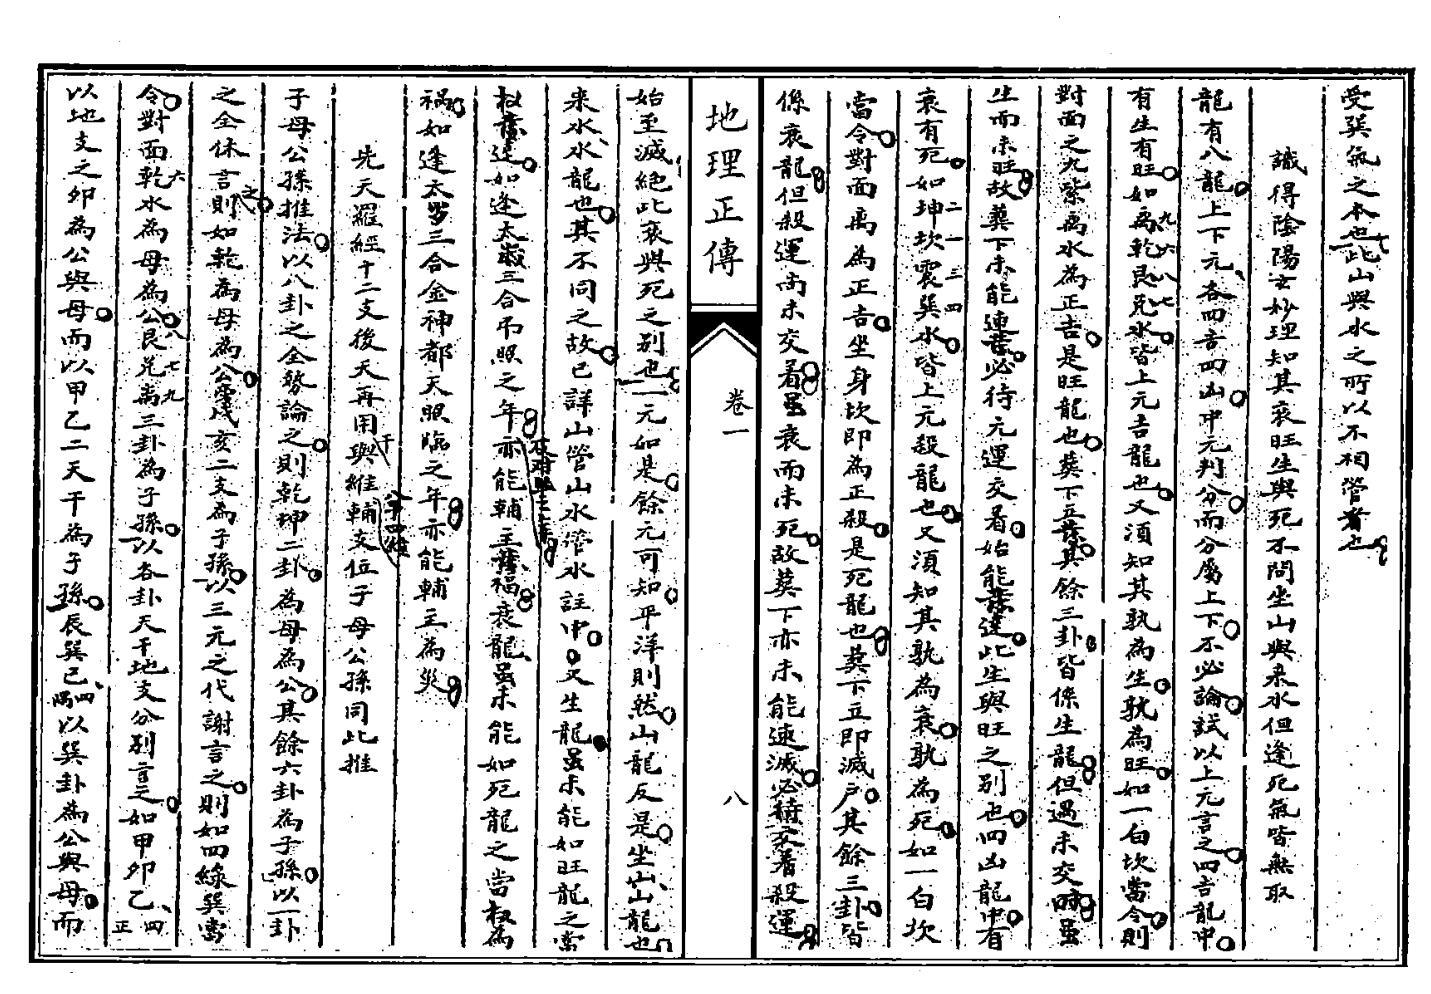 受巽氣之本也此山與水之所以不相管者也
識得陰陽玄妙理知其衰旺生與死不問坐山與來水但逢死氣皆無取
龍有八龍上下元各四吉四凶中元判分而分屬上下不必論試以上元言之四吉龍中
有生有旺如離九乾六艮八兌七水皆上元吉龍也又須知其孰為生孰為旺如一白坎當令則
對面之九紫离水為正吉是旺龍也葬下立發其餘三卦皆係生龍但遇未交時虽
生而未旺故葬下未能連發必待元運交着始能發達此生與旺之別也四凶龍中有
衰有死如坤二坎一震三巽四水皆上元殺龍也又須知其孰為衰孰為死如一白坎
當令對面离為正吉坐身坎即為正殺是死龍也葬下立即滅户其餘三卦皆
係衰龍但殺運尚未交着虽衰而未死故葬下亦未能速滅必待交着殺運
地理正傳
卷一
八
始至滅絕此衰與死之別也一元如是餘元可知平洋則然山龍反是坐山山龍也
來水水龍也其不同之故已詳山管山水管水註中又生龍虽未能如旺龍之當
权發達如逢太歲三合吊照之年亦能輔主發福衰龍虽未能如死龍之當权為
祸如逢太岁三合金神都天照臨之年亦能輔主為災
先天羅經十二支後天再用干與維八干四維輔支位子母公孫同此推
子母公孫推法以八卦之全势論之則乾坤二卦為母為公其餘六卦為子孫以一卦
之全体言之則如乾為母為公戌亥二支為子孫以三元之代謝言之則如四綠巽當
令對面乾六水為母為公艮八兌七离九三卦為子孫以各卦天干地支分别言之如甲卯乙四正
以地支之卯為公與母而以甲乙二天干為子孫辰巽巳四隅以巽卦為公與母而